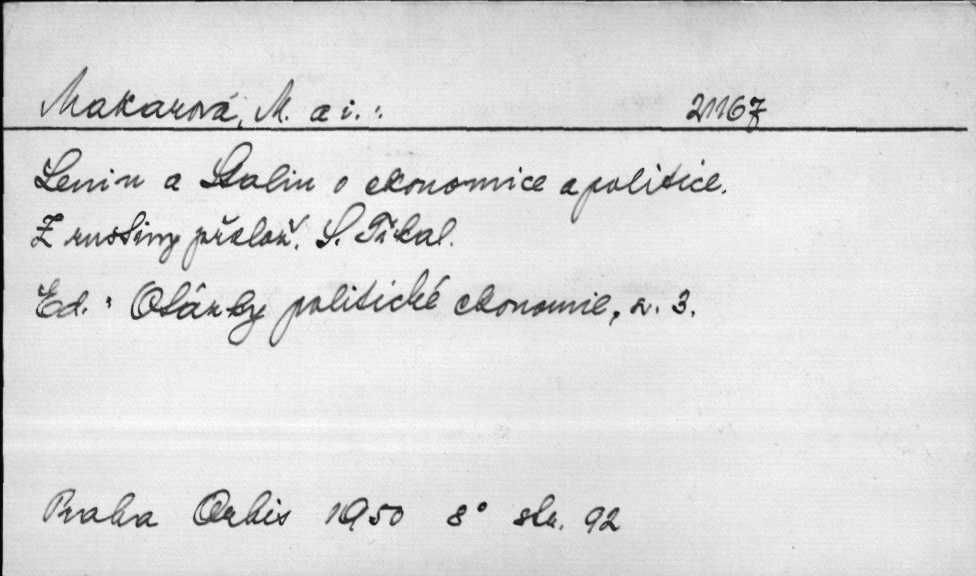 Makarová, M. a i.: 21167
Lenin a Stalin o ekonomice a politice.
Z ruštiny přelož. S. Tikal.
Ed.: Otázky politické ekonomie, sv. 3.
Praha Orbis 1950 8° str. 92